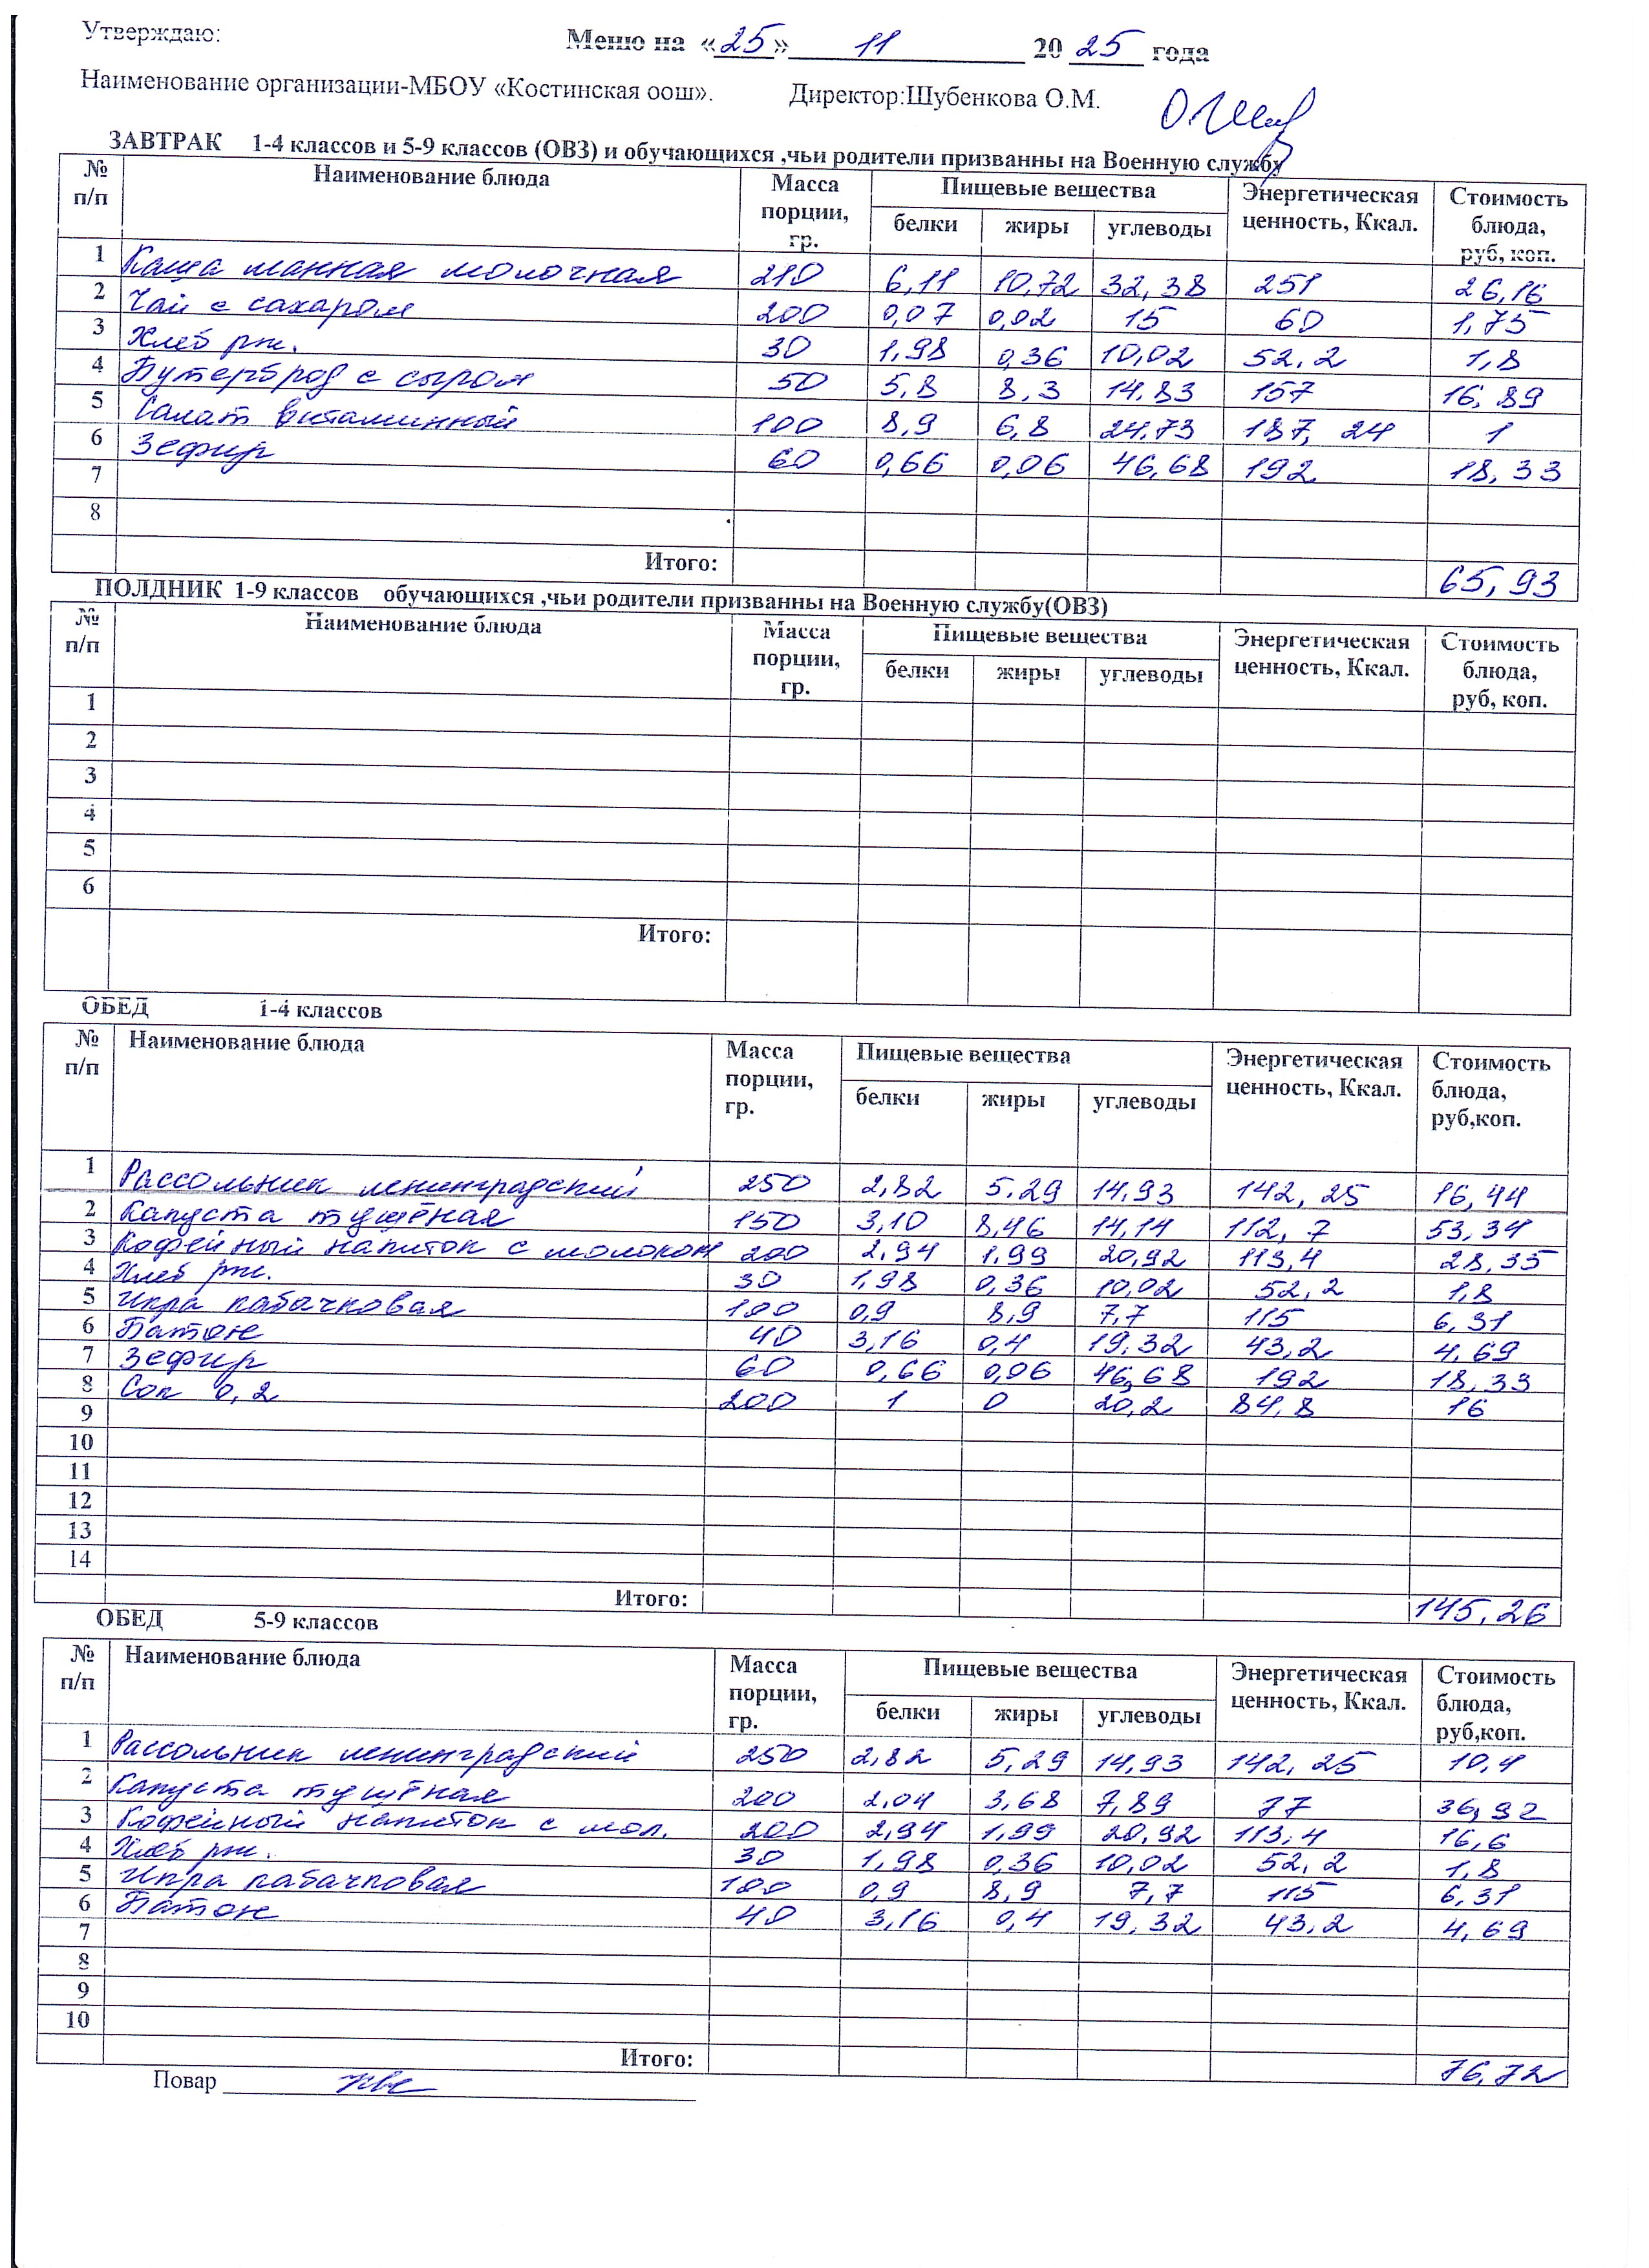 Утверждаю:
Меню на «25» 11 2025 года
Наименование организации-МБОУ «Костинская оош». Директор:Шубенкова О.М.
ЗАВТРАК 1-4 классов и 5-9 классов (ОВЗ) и обучающихся ,чьи родители призванны на Военную службу
№ п/п Наименование блюда Масса порции, гр. Пищевые вещества Энергетическая ценность, Ккал. Стоимость блюда, руб, коп.
белки жиры углеводы
1 Каша манная молочная 210 6,11 10,72 32,38 251 26,16
2 Чай с сахаром 200 0,07 0,02 15 60 1,75
3 Хлеб рж. 30 1,98 0,36 10,02 52,2 1,8
4 Бутерброд с сыром 50 5,8 8,3 14,83 157 16,89
5 Салат витаминный 100 8,9 6,8 24,73 187,24 1
6 Зефир 60 0,66 0,06 46,68 192 18,33
7
8
Итого: 65,93
ПОЛДНИК 1-9 классов обучающихся ,чьи родители призванны на Военную службу(ОВЗ)
№ п/п Наименование блюда Масса порции, гр. Пищевые вещества Энергетическая ценность, Ккал. Стоимость блюда, руб, коп.
белки жиры углеводы
1
2
3
4
5
6
Итого:
ОБЕД 1-4 классов
№ п/п Наименование блюда Масса порции, гр. Пищевые вещества Энергетическая ценность, Ккал. Стоимость блюда, руб,коп.
белки жиры углеводы
1 Рассольник ленинградский 250 2,82 5,29 14,93 142,25 16,44
2 Капуста тушёная 150 3,10 8,46 14,14 112,7 53,34
3 Кофейный напиток с молоком 200 2,94 1,99 20,92 113,4 28,35
4 Хлеб рж. 30 1,98 0,36 10,02 52,2 1,8
5 Икра кабачковая 100 0,9 8,9 7,7 115 6,31
6 Батон 40 3,16 0,4 19,32 43,2 4,69
7 Зефир 60 0,66 0,06 46,68 192 18,33
8 Сок 0,2 200 1 0 20,2 84,8 16
9
10
11
12
13
14
Итого: 145,26
ОБЕД 5-9 классов
№ п/п Наименование блюда Масса порции, гр. Пищевые вещества Энергетическая ценность, Ккал. Стоимость блюда, руб,коп.
белки жиры углеводы
1 Рассольник ленинградский 250 2,82 5,29 14,93 142,25 10,4
2 Капуста тушёная 200 2,04 3,68 7,89 77 36,92
3 Кофейный напиток с мол. 200 2,94 1,99 20,92 113,4 16,6
4 Хлеб рж. 30 1,98 0,36 10,02 52,2 1,8
5 Икра кабачковая 100 0,9 8,9 7,7 115 6,31
6 Батон 40 3,16 0,4 19,32 43,2 4,69
7
8
9
10
Итого: 76,72
Повар